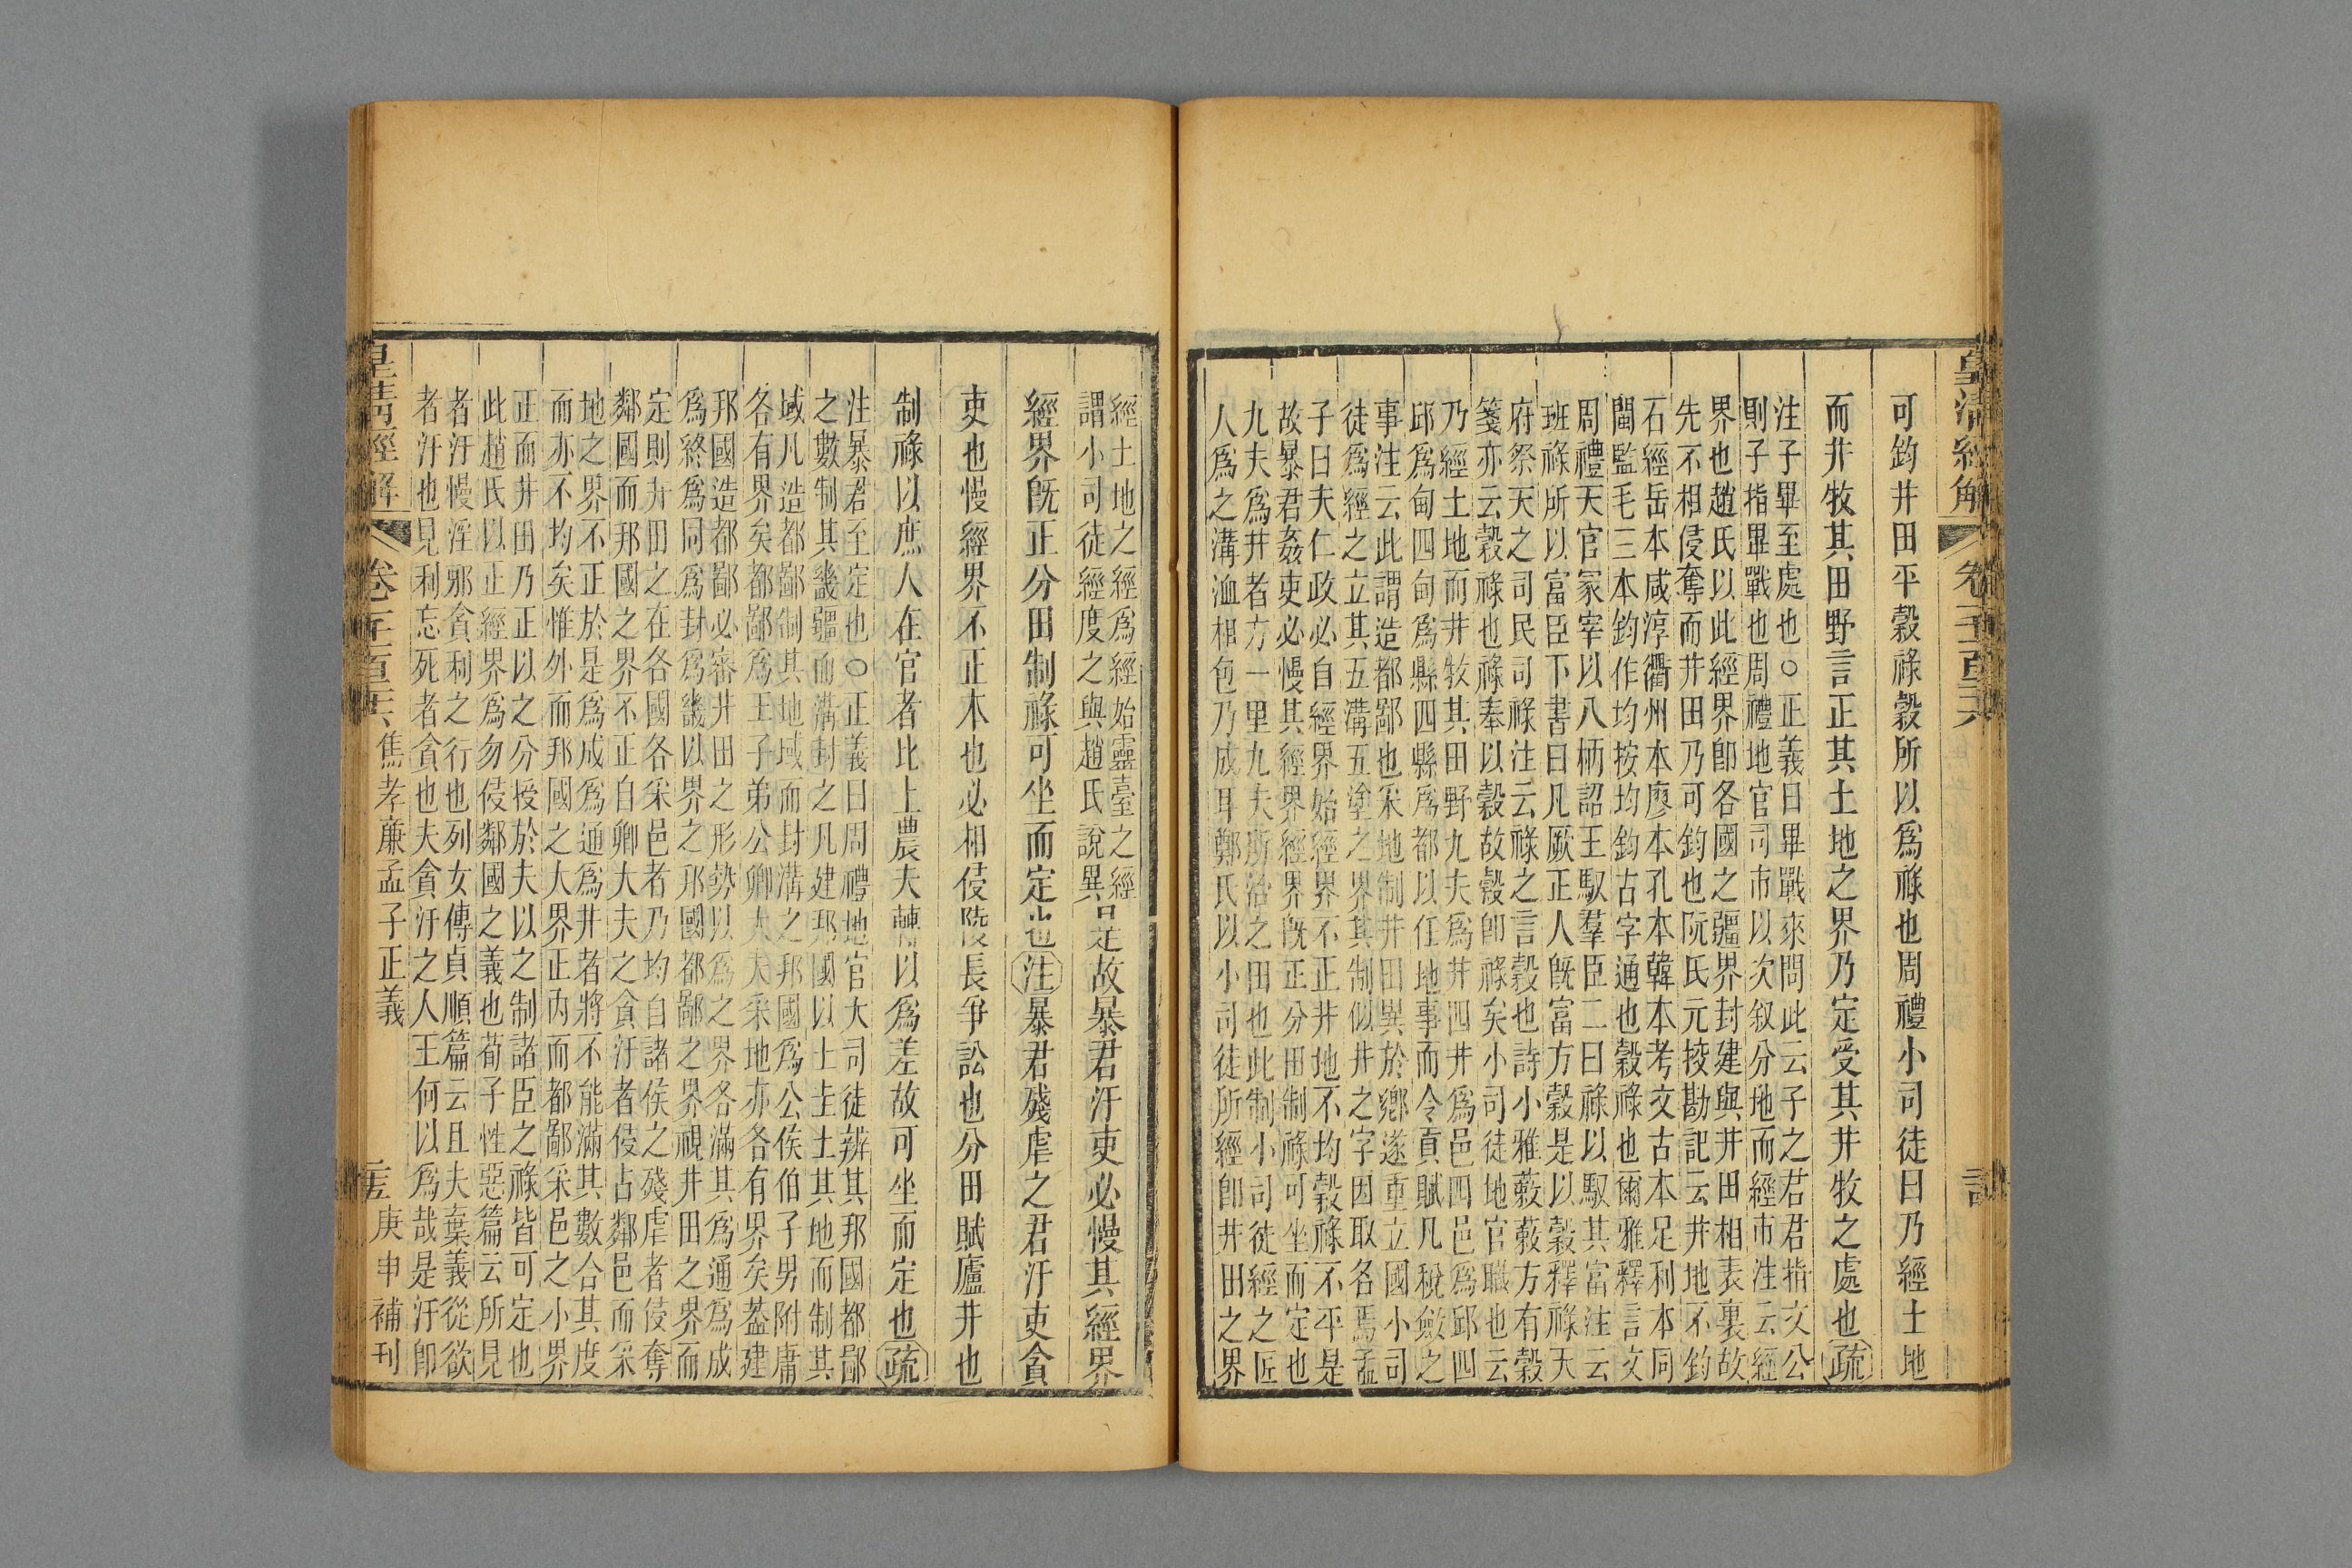 皇清經解
可鈞井田平穀祿穀所以爲祿也周禮小司徒曰乃經土地
而井牧其田野言正其土地之界乃定受其井牧之處也疏
注子畢至處也○正義曰畢戰來問此云子之君君指文公
則子指畢戰也周禮地官司市以次叙分地而經市注云經
界也趙氏以此經界卽各國之疆界封建與井田相表裏故
先不相侵奪而井田乃可鈞也阮氏元挍勘記云井地不鈞
石經岳本咸淳衢州本廖本孔本韓本考文古本足利本同
閩監毛三本鈞作均按均鈞古字通也穀祿也爾雅釋言文
周禮天官冢宰以八柄詔王馭羣臣二曰祿以馭其富注云
班祿所以富臣下書曰凡厥正人旣富方穀是以穀釋祿天
府祭天之司民司祿注云祿之言穀也詩小雅蔌蔌方有穀
箋亦云穀祿也祿奉以穀故穀卽祿矣小司徒地官職也云
乃經土地而井牧其田野九夫爲井四井爲邑四邑爲邱四
邱爲甸四甸爲縣四縣爲都以任地事而令貢賦凡稅斂之
事注云此謂造都鄙也采地制井田異於鄉遂重立國小司
徒爲經之立其五溝五塗之界其制似井之字因取名焉孟
子曰夫仁政必自經界始經界不正井地不均穀祿不平是
故暴君姦吏必慢其經界經界旣正分田制祿可坐而定也
九夫爲井者方一里九夫所治之田也此制小司徒經之匠
人爲之溝洫相包乃成耳鄭氏以小司徒所經卽井田之界
經土地之經爲經始靈臺之經
謂小司徒經度之與趙氏說異
是故暴君汙吏必慢其經界
經界旣正分田制祿可坐而定也注暴君殘虐之君汙吏貪
吏也慢經界不正本也必相侵陵長爭訟也分田賦廬井也
制祿以庶人在官者比上農夫轉以爲差故可坐而定也疏
注暴君至定也○正義曰周禮地官大司徒辨其邦國都鄙
之數制其畿疆而溝封之凡建邦國以土圭土其地而制其
域凡造都鄙制其地域而封溝之邦國爲公侯伯子男附庸
各有界矣都鄙爲王子弟公卿大夫采地亦各有界矣葢建
邦國造都鄙必審井田之形勢以爲之界各滿其爲通爲成
爲終爲同爲封爲畿以界之邦國都鄙之界視井田之界而
定則井田之在各國各采邑者乃均自諸侯之殘虐者侵奪
鄰國而邦國之界不正自卿大夫之貪汙者侵占鄰邑而采
地之界不正於是爲成爲通爲井者將不能滿其數合其度
而亦不均矣惟外而邦國之大界正內而都鄙采邑之小界
正而井田乃正以之分授於夫以之制諸臣之祿皆可定也
此趙氏以正經界爲勿侵鄰國之義也荀子性惡篇云所見
者汙慢淫邪貪利之行也列女傳貞順篇云且夫棄義從欲
者汙也見利忘死者貪也夫貪汙之人王何以爲哉是汙卽
皇清經解
焦孝廉孟子正義
庚申補刊